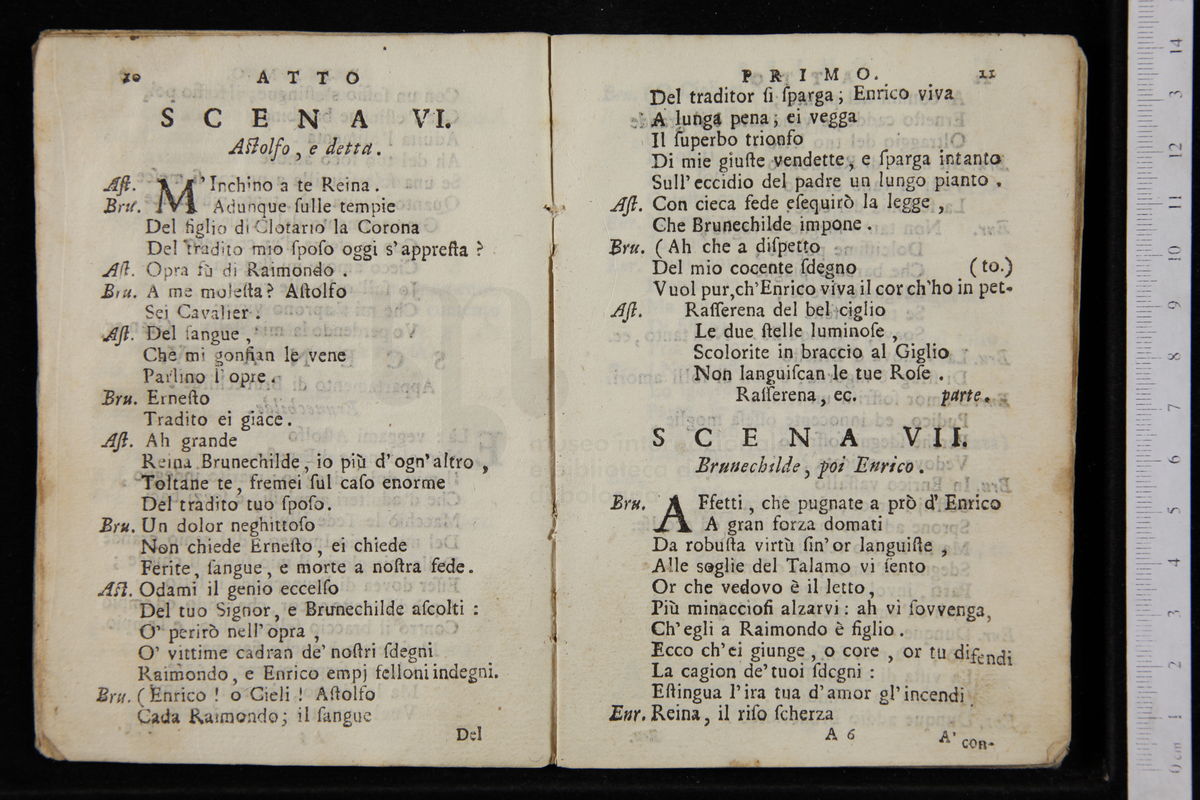 10 ATTO
SCENA VI.
Aſtolfo, e detta.
Aſt. M'Inchino a te Reina.
Bru. Adunque ſulle tempie
Del figlio di Clotario la Corona
Del tradito mio ſpoſo oggi s'appreſta?
Aſt. Opra fù di Raimondo.
Bru. A me moleſta? Aſtolfo
Sei Cavalier.
Aſt. Del ſangue,
Che mi gonfian le vene
Parlino l'opre.
Bru. Erneſto
Tradito ei giace.
Aſt. Ah grande
Reina Brunechilde, io più d'ogn'altro,
Toltane te, fremei ſul caſo enorme
Del tradito tuo ſpoſo.
Bru. Un dolor neghittoſo
Non chiede Erneſto, ei chiede
Ferite, ſangue, e morte a noſtra fede.
Aſt. Odami il genio eccelſo
Del tuo Signor, e Brunechilde aſcolti:
O' perirò nell'opra,
O' vittime cadran de' noſtri ſdegni
Raimondo, e Enrico empj felloni indegni.
Bru. (Enrico! o Cieli! Aſtolfo
Cada Raimondo; il ſangue
Del
PRIMO. 11
Del traditor ſi ſparga; Enrico viva
A lunga pena; ei vegga
Il ſuperbo trionfo
Di mie giuſte vendette, e ſparga intanto
Sull'eccidio del padre un lungo pianto.
Aſt. Con cieca fede eſequirò la legge,
Che Brunechilde impone.
Bru. (Ah che a diſpetto
Del mio cocente ſdegno (to.)
Vuol pur, ch'Enrico viva il cor ch'ho in pet-
Aſt. Raſſerena del bel ciglio
Le due ſtelle luminoſe,
Scolorite in braccio al Giglio
Non languiſcan le tue Roſe.
Raſſerena, ec. parte.
SCENA VII.
Brunechilde, poi Enrico.
Bru. AFfetti, che pugnate a prò d'Enrico
A gran forza domati
Da robuſta virtù ſin'or languiſte,
Alle soglie del Talamo vi ſento
Or che vedovo è il letto,
Più minaccioſi alzarvi: ah vi ſovvenga,
Ch'egli a Raimondo è figlio.
Ecco ch'ei giunge, o core, or tu difendi
La cagion de'tuoi ſdegni:
Eſtingua l'ira tua d'amor gl'incendi
Enr. Reina, il riſo ſcherza
A 6 A' cor-